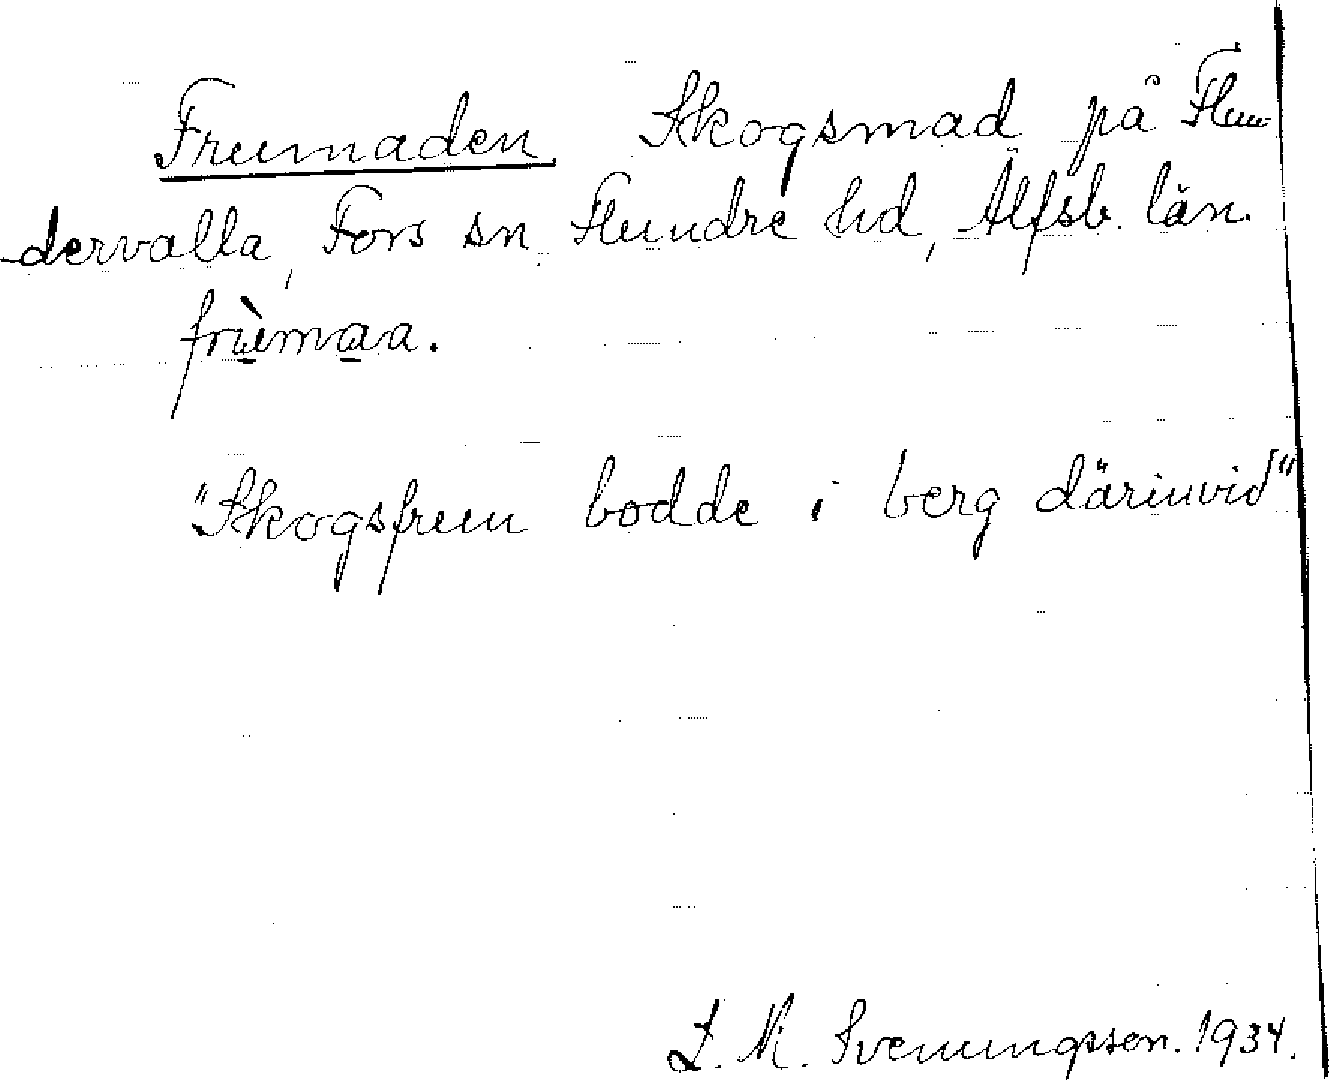 Frumaden. Skogsmad på Flun-
dervalla, Fors sn. Flundre hd, Älfsb. län.
frùmaa.
"Skogsfrun bodde i berg därinvid"
L. M. Svenungsson. 1934.